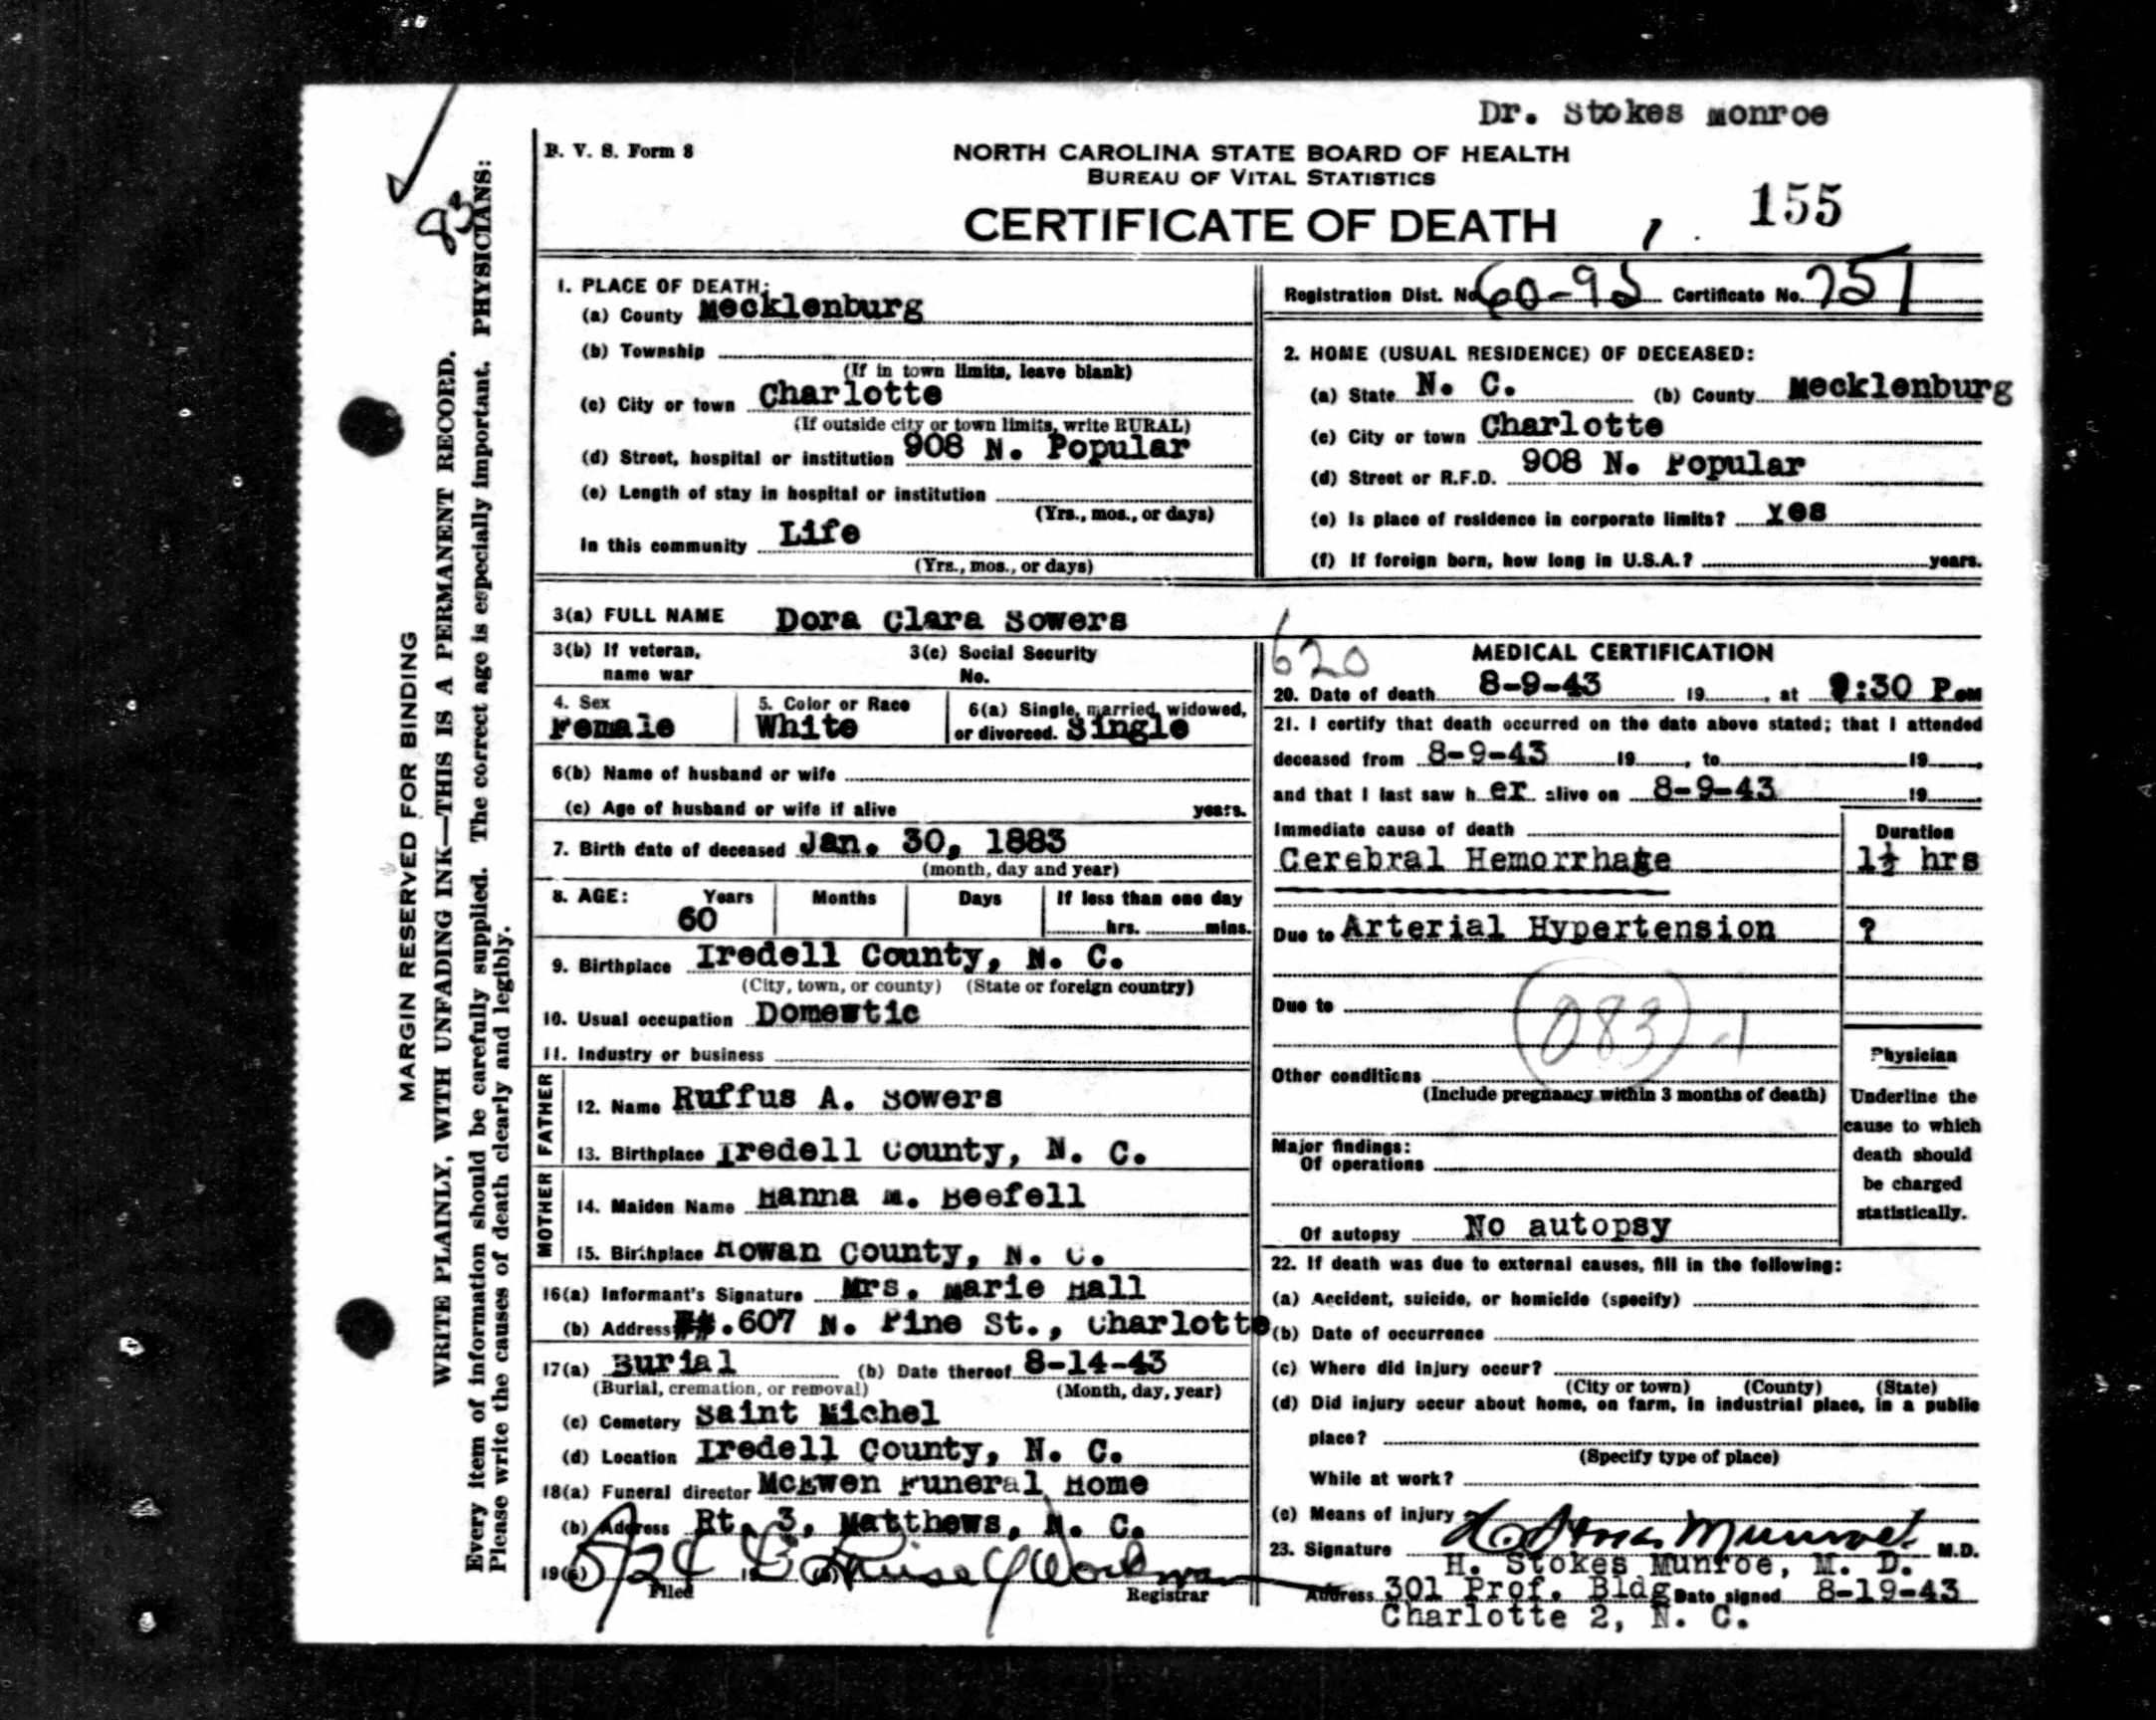 Dr. Stokes Monroe
B. V. S. Form 8
NORTH CAROLINA STATE BOARD OF HEALTH
BUREAU OF VITAL STATISTICS
CERTIFICATE OF DEATH
155
83
MARGIN RESERVED FOR BINDING
WRITE PLAINLY, WITH UNFADING INK—THIS IS A PERMANENT RECORD.
Every item of information should be carefully supplied. The correct age is especially important. PHYSICIANS:
Please write the causes of death clearly and legibly.
1. PLACE OF DEATH:
(a) County Mecklenburg
(b) Township
(If in town limits, leave blank)
(c) City or town Charlotte
(If outside city or town limits, write RURAL)
(d) Street, hospital or institution 908 N. Popular
(e) Length of stay in hospital or institution
(Yrs., mos., or days)
In this community Life
(Yrs., mos., or days)
Registration Dist. No. 60-95 Certificate No. 751
2. HOME (USUAL RESIDENCE) OF DECEASED:
(a) State N. C. (b) County Mecklenburg
(c) City or town Charlotte
(d) Street or R.F.D. 908 N. Popular
(e) Is place of residence in corporate limits? Yes
(f) If foreign born, how long in U.S.A.? years.
3(a) FULL NAME Dora Clara Sowers
3(b) If veteran, 3(c) Social Security
name war No.
4. Sex 5. Color or Race 6(a) Single, married, widowed,
Female White or divorced. Single
6(b) Name of husband or wife
(c) Age of husband or wife if alive years.
7. Birth date of deceased Jan. 30, 1883
(month, day and year)
8. AGE: Years Months Days If less than one day
60 hrs. mins.
9. Birthplace Iredell County, N. C.
(City, town, or county) (State or foreign country)
10. Usual occupation Domewtic
11. Industry or business
FATHER
12. Name Ruffus A. Sowers
13. Birthplace Iredell County, N. C.
MOTHER
14. Maiden Name Hanna M. Beefell
15. Birthplace Rowan County, N. C.
16(a) Informant's Signature Mrs. Marie Hall
(b) Address .607 N. Pine St., Charlotte
17(a) Burial (b) Date thereof 8-14-43
(Burial, cremation, or removal) (Month, day, year)
(c) Cemetery Saint Michel
(d) Location Iredell County, N. C.
18(a) Funeral director McEwen Funeral Home
(b) Address Rt. 3, Matthews, N. C.
19(a) 8/24 Louise J Workman
Filed Registrar
620
MEDICAL CERTIFICATION
20. Date of death 8-9-43 19 , at 9:30 P.M
21. I certify that death occurred on the date above stated; that I attended
deceased from 8-9-43 19 , to 19 ,
and that I last saw h er alive on 8-9-43 19 .
Immediate cause of death Duration
Cerebral Hemorrhage 1½ hrs
Due to Arterial Hypertension ?
Due to
083 -1
Other conditions
(Include pregnancy within 3 months of death)
Major findings:
Of operations
Of autopsy No autopsy
Physician
Underline the
cause to which
death should
be charged
statistically.
22. If death was due to external causes, fill in the following:
(a) Accident, suicide, or homicide (specify)
(b) Date of occurrence
(c) Where did injury occur?
(City or town) (County) (State)
(d) Did injury occur about home, on farm, in industrial place, in a public
place?
(Specify type of place)
While at work?
(e) Means of injury
23. Signature H. Stokes Munroe M.D.
H. Stokes Munroe, M. D.
Address 301 Prof. Bldg Date signed 8-19-43
Charlotte 2, N. C.